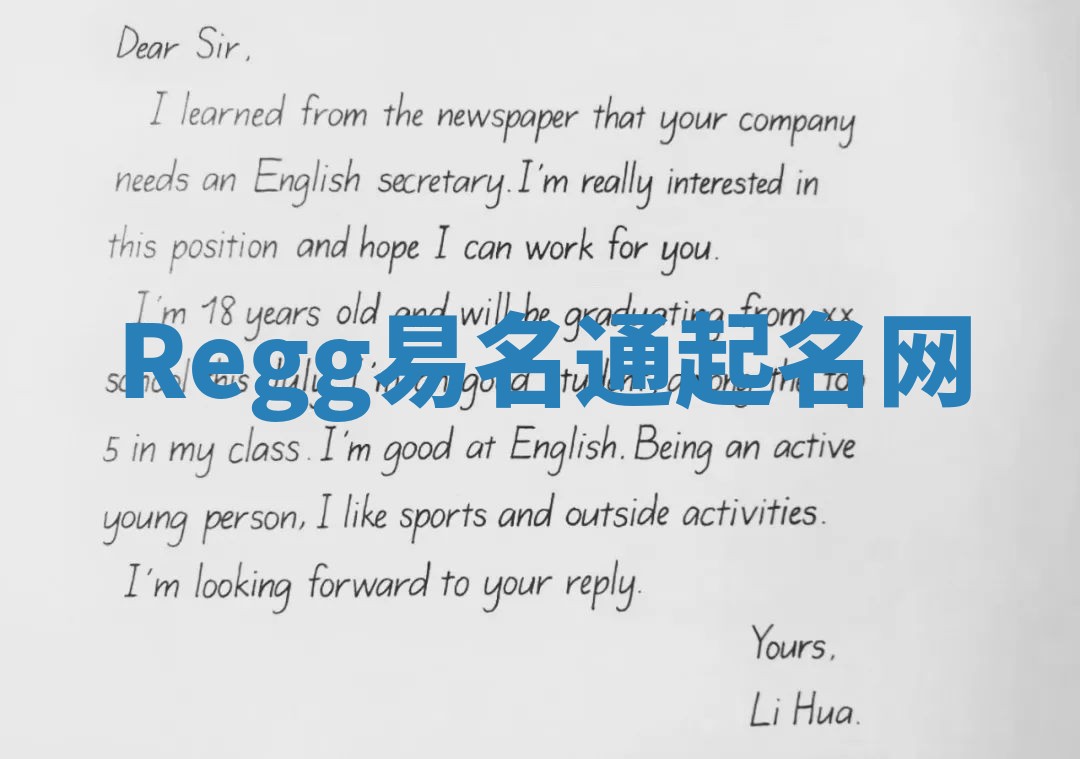 Dear Sir,
I learned from the newspaper that your company
needs an English secretary. I'm really interested in
this position and hope I can work for you.
I'm 18 years old and will be graduating from xx
Regg易名通起名网
school this July. I'm a good student, among the top
5 in my class. I'm good at English. Being an active
young person, I like sports and outside activities.
I'm looking forward to your reply.
Yours,
Li Hua.